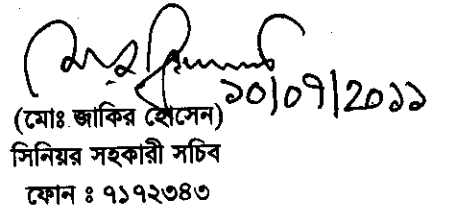 ১০/০৭/২০১১
(মোঃ জাকির হোসেন)
সিনিয়র সহকারী সচিব
ফোন ঃ ৭১৭২৩৪৩